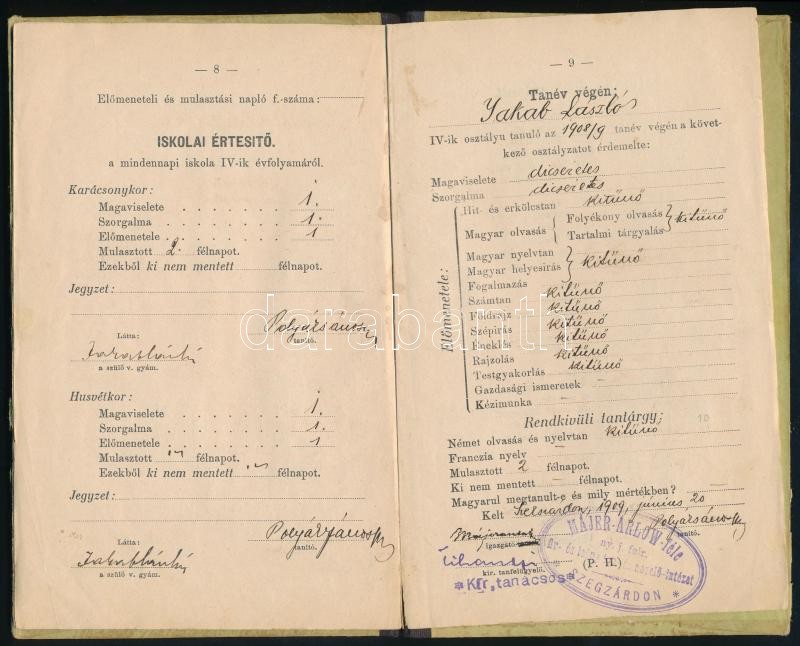 — 8 —
Előmeneteli és mulasztási napló f.-száma:
ISKOLAI ÉRTESITŐ.
a mindennapi iskola IV-ik évfolyamáról.
Karácsonykor:
Magaviselete . . . . . . 1.
Szorgalma . . . . . . 1.
Előmenetele . . . . . . 1
Mulasztott 2. félnapot.
Ezekből ki nem mentett félnapot.
Jegyzet:
Polgár János
Látta: tanító.
a szülő v. gyám.
Husvétkor:
Magaviselete . . . . . . 1.
Szorgalma . . . . . . 1
Előmenetele . . . . . . 1
Mulasztott félnapot.
Ezekből ki nem mentett félnapot.
Jegyzet:
Polgár János
Látta: tanító.
a szülő v. gyám.
— 9 —
Tanév végén:
Jakab László
IV-ik osztályu tanuló az 1908/9 tanév végén a követ-
kező osztályzatot érdemelte:
Magaviselete dicséretes
Szorgalma dicséretes
Előmenetele:
Hit- és erkölcstan kitünő
Magyar olvasás Folyékony olvasás kitünő
Tartalmi tárgyalás
Magyar nyelvtan kitünő
Magyar helyesírás
Fogalmazás kitünő
Számtan kitünő
Földrajz kitünő
Szépírás kitünő
Éneklés kitünő
Rajzolás kitünő
Testgyakorlás kitünő
Gazdasági ismeretek –
Kézimunka –
Rendkivüli tantárgy:
Német olvasás és nyelvtan kitünő
Franczia nyelv –
Mulasztott 2 félnapot.
Ki nem mentett – félnapot.
Magyarul megtanult-e és mily mértékben?
Kelt Szekszárdon, 1909, junius 20
Polgár János
igazgató tanító.
kir. tanfelügyelő. (P. H.)
*Kir. tanácsos*
MAJER-ARLOW-féle
nevelő-intézet
* SZEGZÁRDON *
darabanth